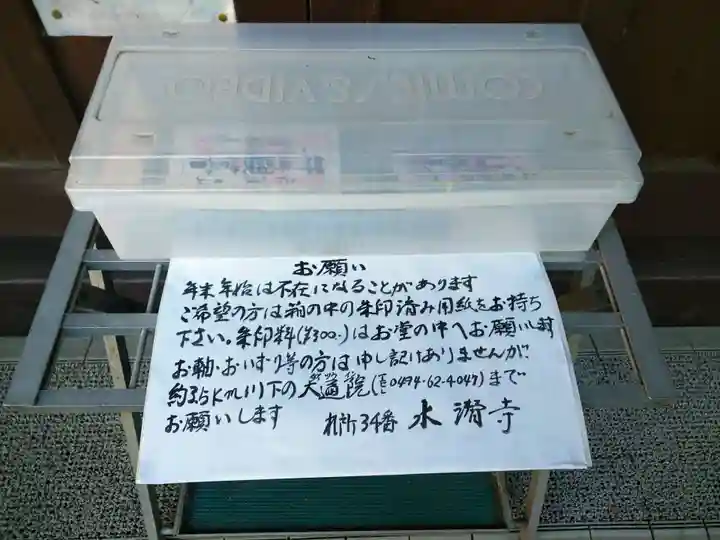 COMIC/S VIDEO
お願い
年末年始は不在になることがあります
ご希望の方は箱の中の朱印済み用紙をお持ち
下さい。朱印料(¥300-)はお堂の中へお願いします
お軸・おいずり等の方は申し訳ありませんが
約3.5Km川下の大通院(℡0494-62-4047)まで
お願いします
札所34番 水潜寺